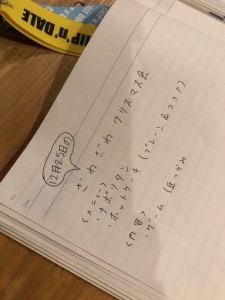 IP'n'DALE
12月25日の
ざわざわ クリスマス会
<メニュー>
・ナポリタン
・ホットケーキ (プレーン & ココア)
<内容>
・ゲーム (豆つかみ